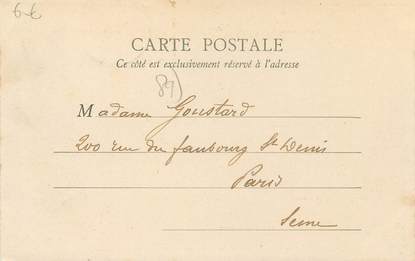 6€
CARTE POSTALE
Ce côté est exclusivement réservé à l'adresse
89)
Madame Goustard
200 rue du faubourg St Denis
Paris
Seine